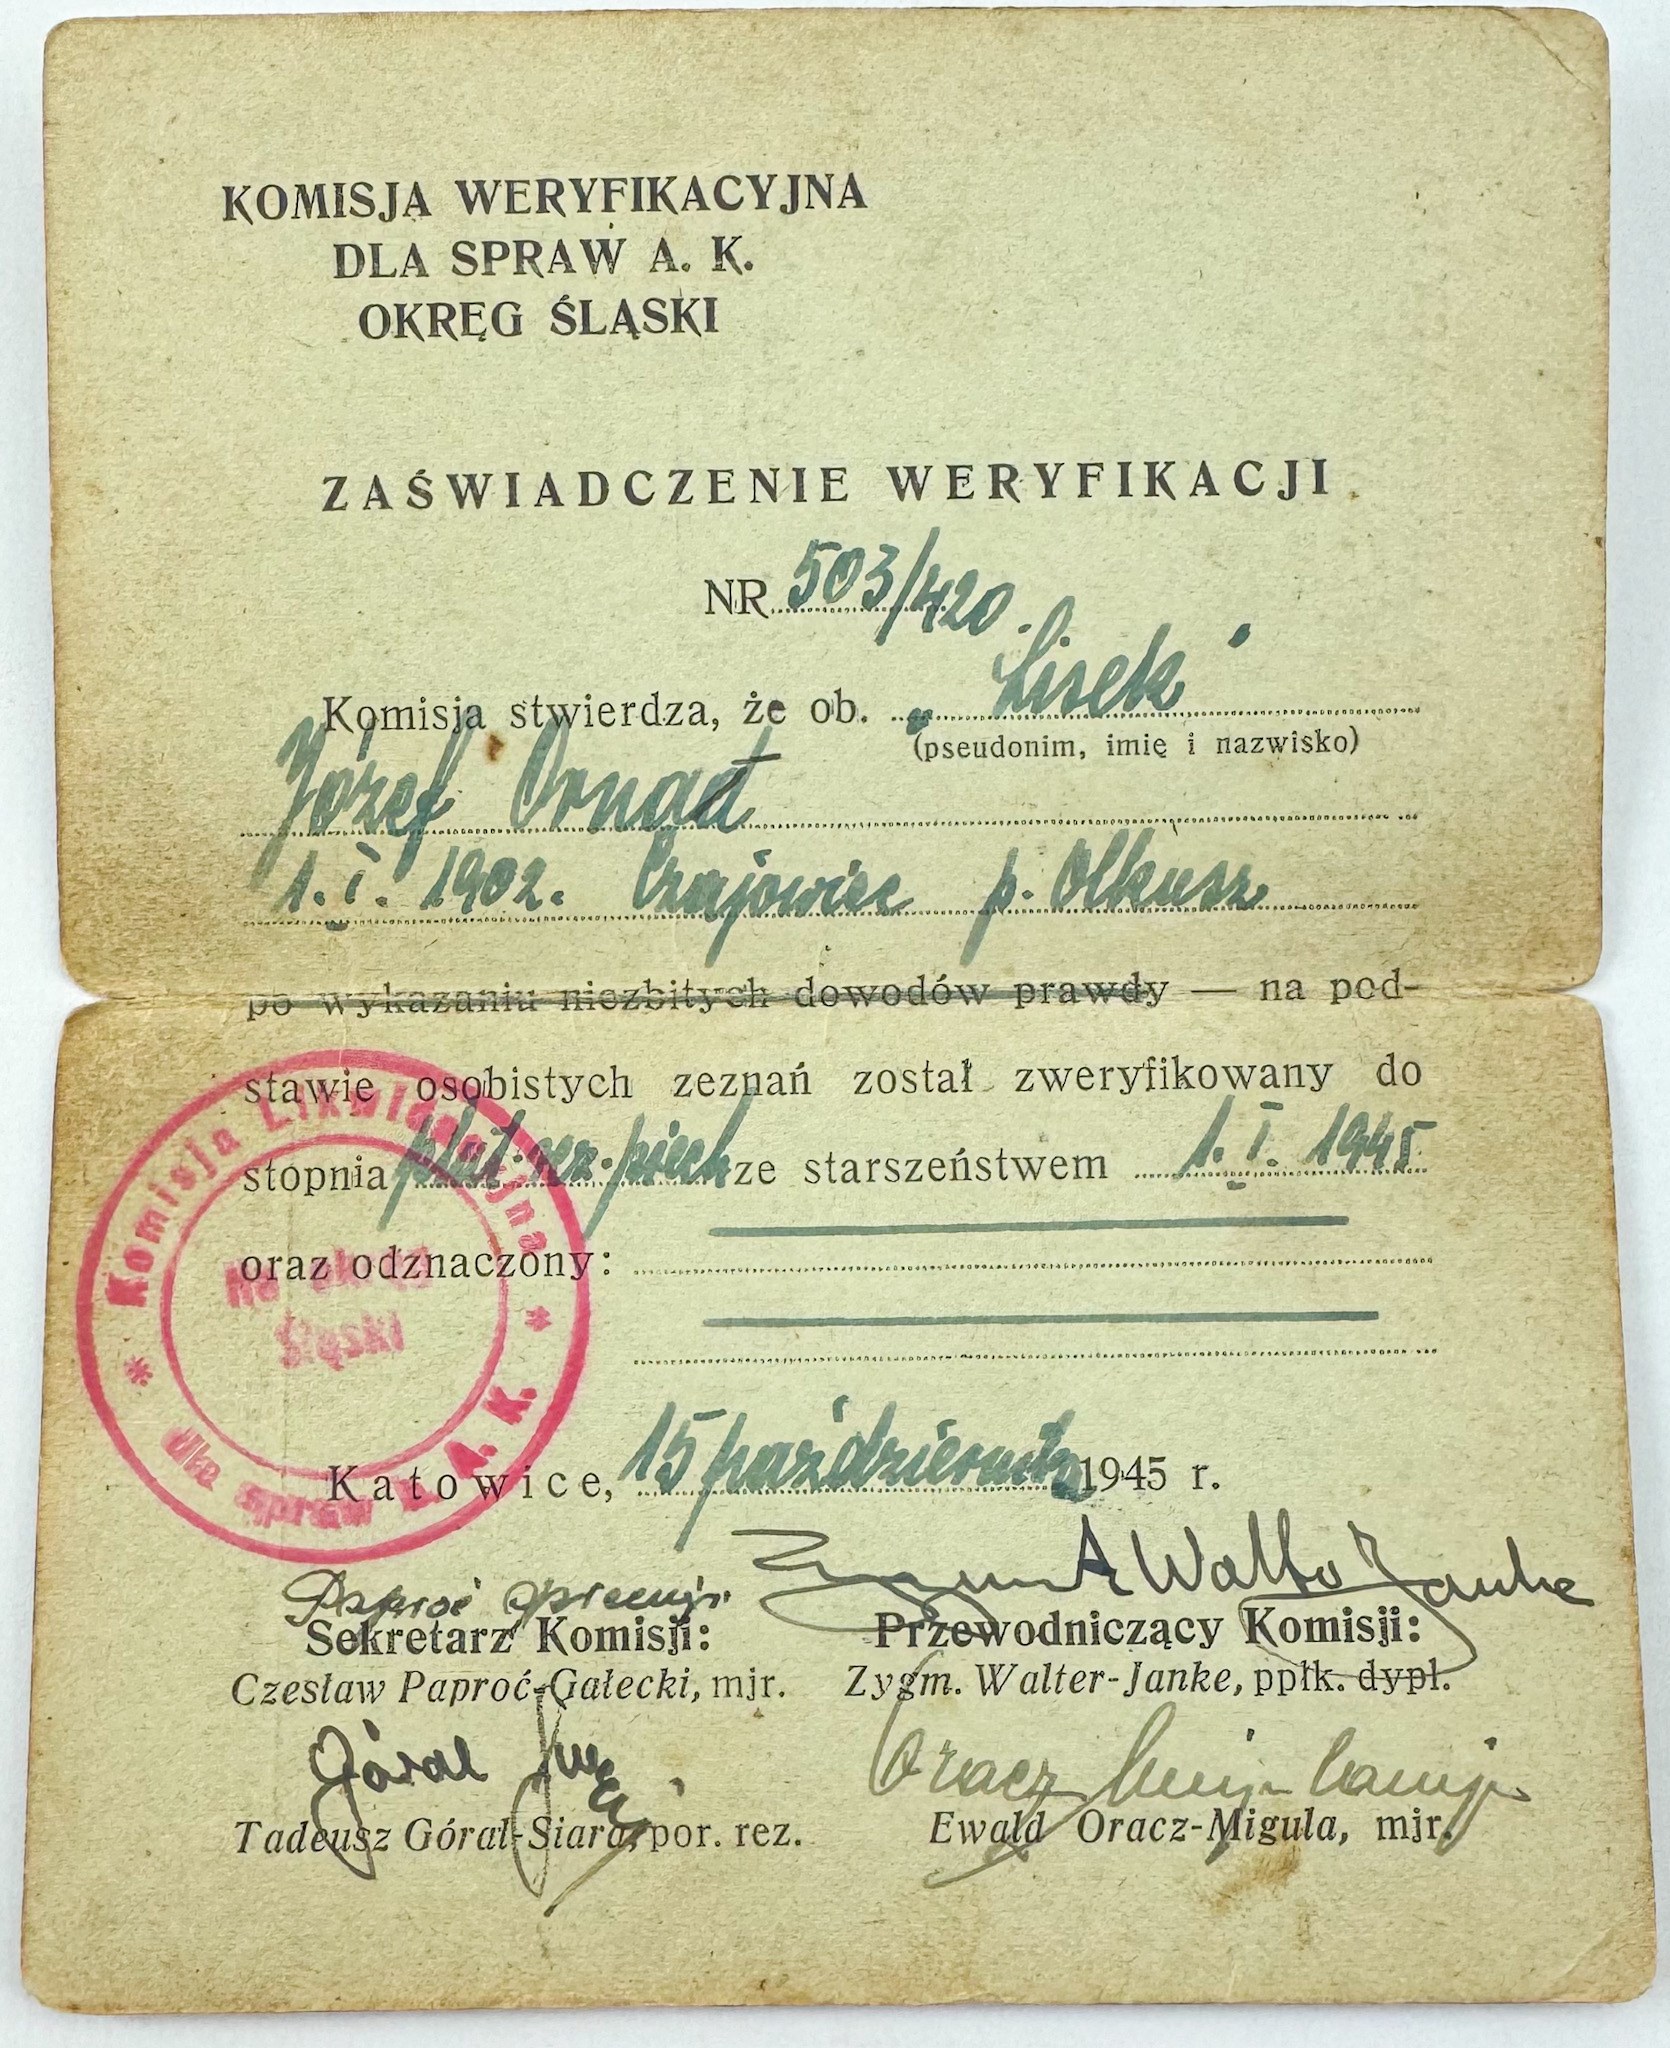 KOMISJA WERYFIKACYJNA
DLA SPRAW A. K.
OKRĘG ŚLĄSKI
ZAŚWIADCZENIE WERYFIKACJI
NR 503/420.
Komisja stwierdza, że ob. „Lisek"
(pseudonim, imię i nazwisko)
Józef Ornat
1. I. 1902. Czajowiec p. Olkusz
po wykazaniu niezbitych dowodów prawdy — na pod-
stawie osobistych zeznań został zweryfikowany do
stopnia plut. rez. piech ze starszeństwem 1. I. 1945
oraz odznaczony:
Komisja Likwidacyjna
Na okręg
Śląski
dla spraw A. K.
Katowice, 15 października 1945 r.
Zygmunt Walter Janke
Sekretarz Komisji:
Przewodniczący Komisji:
Czesław Paproć-Gałecki, mjr.
Zygm. Walter-Janke, ppłk. dypl.
Góral
Oracz
Tadeusz Góral-Siara, por. rez.
Ewald Oracz-Migula, mjr.